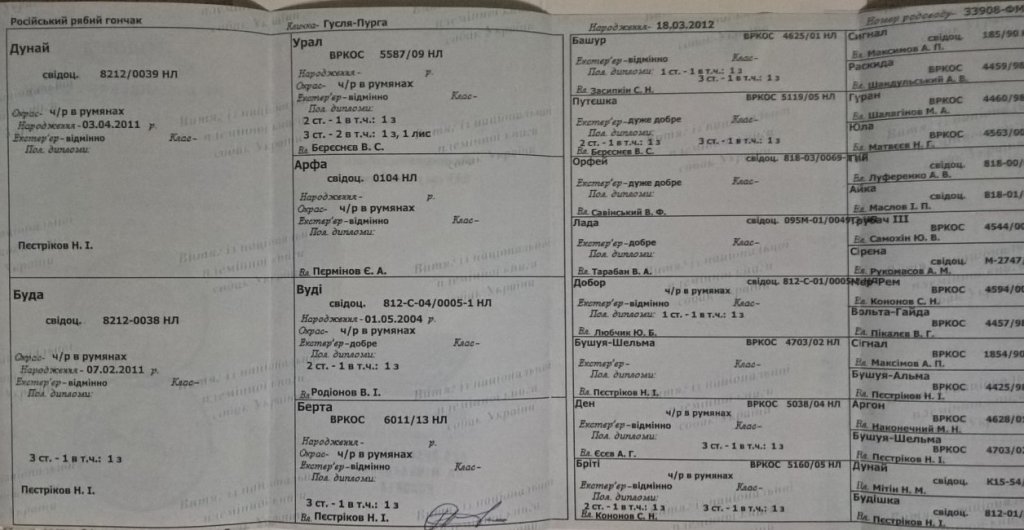 Російський рябий гончак
Кличка- Гусля-Пурга
Народження- 18.03.2012
Номер родоводу- 33908-ФМ
Дунай
свідоц. 8212/0039 НЛ
Окрас- ч/р в румянах
Народження - 03.04.2011 р.
Екстер'єр - відмінно Клас-
Пол. дипломи:
Пєстріков Н. І.
Буда
свідоц. 8212-0038 НЛ
Окрас- ч/р в румянах
Народження - 07.02.2011 р.
Екстер'єр - відмінно Клас-
3 ст. - 1 в т.ч.: 1 з
Пєстріков Н. І.
Урал
ВРКОС 5587/09 НЛ
Народження - р.
Окрас- ч/р в румянах
Екстер'єр - відмінно Клас-
Пол. дипломи:
2 ст. - 1 в т.ч.: 1 з
3 ст. - 2 в т.ч.: 1 з, 1 лис
Вл. Бєрєснєв В. С.
Арфа
свідоц. 0104 НЛ
Народження - р.
Окрас- ч/р в румянах
Екстер'єр - відмінно Клас-
Пол. дипломи:
Вл. Пєрмінов Є. А.
Вуді
свідоц. 812-С-04/0005-1 НЛ
Народження - 01.05.2004 р.
Окрас- ч/р в румянах
Екстер'єр - добре Клас-
Пол. дипломи:
2 ст. - 1 в т.ч.: 1 з
Вл. Родіонов В. І.
Берта
ВРКОС 6011/13 НЛ
Народження - р.
Окрас- ч/р в румянах
Екстер'єр - відмінно Клас-
3 ст. - 1 в т.ч.: 1 з
Вл. Пєстріков Н. І.
Башур ВРКОС 4625/01 НЛ
Екстер'єр - відмінно Клас-
Пол. дипломи: 1 ст. - 1 в т.ч.: 1 з
3 ст. - 1 в т.ч.: 1 з
Вл. Засипкін С. Н.
Путєшка ВРКОС 5119/05 НЛ
Екстер'єр - дуже добре Клас-
Пол. дипломи:
2 ст. - 1 в т.ч.: 1 з 3 ст. - 1 в т.ч.: 1 з
Вл. Бєрєснєв В. С.
Орфей свідоц. 818-03/0069-
Екстер'єр - дуже добре Клас-
Пол. дипломи:
Вл. Савінський В. Ф.
Лада свідоц. 095М-01/0049
Екстер'єр - добре Клас-
Пол. дипломи:
Вл. Тарабан В. А.
Добор свідоц. 812-С-01/0005
ч/р в румянах
Екстер'єр - відмінно Клас-
Пол. дипломи: 1 ст. - 1 в т.ч.: 1 з
Вл. Любчик Ю. Б.
Бушуя-Шельма ВРКОС 4703/02 НЛ
Екстер'єр - Клас-
Пол. дипломи:
Вл. Пєстріков Н. І.
Ден ВРКОС 5038/04 НЛ
ч/р в румянах
Екстер'єр - відмінно Клас-
Пол. дипломи: 3 ст. - 1 в т.ч.: 1 з
Вл. Єсєв А. Г.
Бріті ВРКОС 5160/05 НЛ
ч/р в румянах
Екстер'єр - відмінно Клас-
Пол. дипломи:
2 ст. - 1 в т.ч.: 1 з 3 ст. - 1 в т.ч.: 1 з
Вл. Кононов С. Н.
Сигнал
свідоц. 185/90
Вл. Максимов А. П.
Раскида
ВРКОС 4459/98
Вл. Шандульський А. В.
Гуран
ВРКОС 4460/98
Вл. Шалагінов М. А.
Юла
ВРКОС 4563/00
Вл. Матвєєв Н. Г.
свідоц. 818-00/
Вл. Луференко А. В.
Айка
свідоц. 818-01/
Вл. Маслов І. П.
Трубач III
ВРКОС 4544/00
Вл. Самохін Ю. В.
Сірєна
свідоц. М-2747/
Вл. Рукомасов А. М.
ВРКОС 4594/00
Вл. Кононов С. Н.
Вольта-Гайда
ВРКОС 4457/98
Вл. Пікалєв В. Г.
Сігнал
ВРКОС 1854/90
Вл. Максімов А. П.
Бушуя-Альма
ВРКОС 4425/98
Вл. Пєстріков Н. І.
Аргон
ВРКОС 4628/01
Вл. Наконечний М. Н.
Бушуя-Шельма
ВРКОС 4703/02
Вл. Пєстріков Н. І.
Дунай
свідоц. К15-54/
Вл. Мітін Н. М.
Будішка
свідоц. 812-01/
Вл. Пєстріков Н. І.